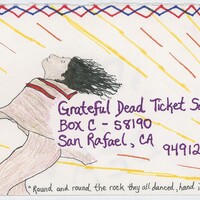 Grateful Dead Ticket S
Box C - 58190
San Rafael, CA
94912
"Round and round the rock they all danced, hand i